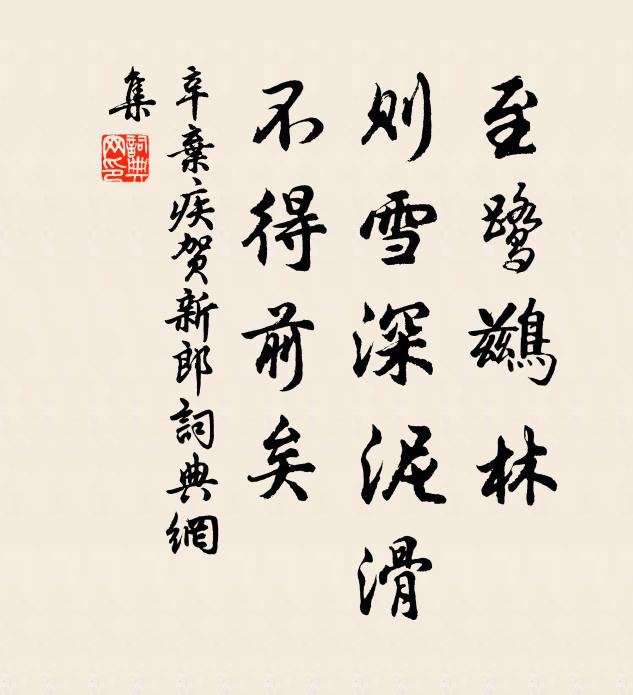 至鹭鹚林
则雪深泥滑
不得前矣
辛棄疾贺新郎詞典網
集
詞典
网印